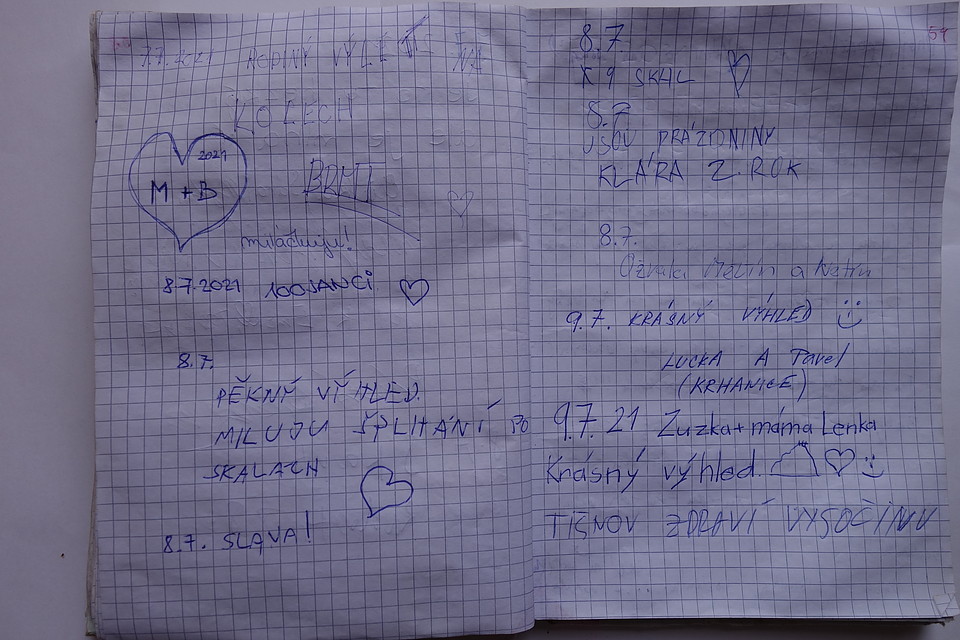 7.7.2021 RODINNÝ VÝLET NA
KOLECH
2021
M + B
miláčkuju!
8.7.2021 100JANCI
8.7.
PĚKNÝ VÝHLED.
MILUJU ŠPLHÁNÍ PO
SKALÁCH
8.7. SLAVA!
57
8.7.
8.7
ÚSOV PRÁZDNINY
KLÁRA 2. ROK
8.7.
9.7. KRÁSNÝ VÝHLED
LUCKA A Pavel
(KRHANICE)
9.7.21 Zuzka+máma Lenka
Krásný výhled.
TIŠNOV ZDRAVÍ VYSOČINU